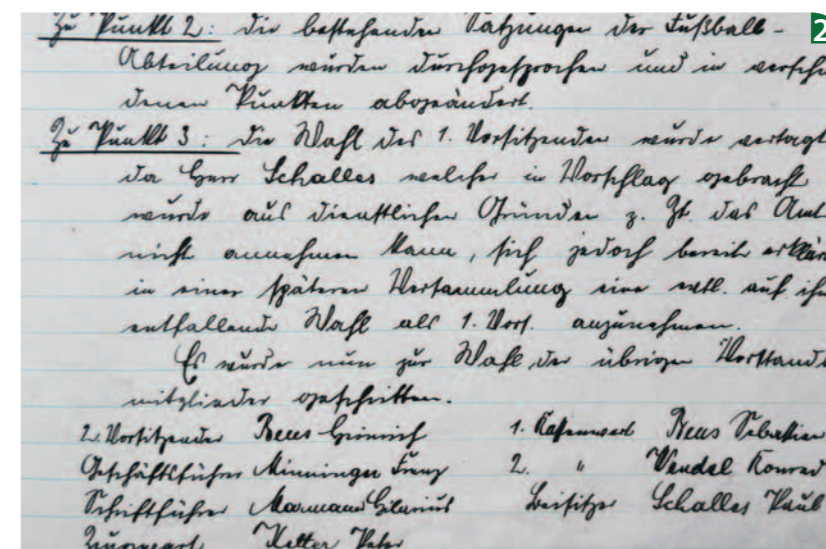 Zu Punkt 2: die bestehenden Satzungen der Fußball-
Abteilung wurden durchgesprochen und in verschie
denen Punkten abgeändert.
Zu Punkt 3: die Wahl des 1. Vorsitzenden wurde vertagt
da Herr Schalles welcher in Vorschlag gebracht
wurde aus dienstlichen Gründen z. Zt. das Amt
nicht annehmen kann, sich jedoch bereit erklär
in einer späteren Versammlung eine evtl. auf ihn
entfallende Wahl als 1. Vors. anzunehmen.
Es wurde nun zur Wahl der übrigen Vorstands
mitglieder geschritten.
2. Vorsitzender Beus Heinrich 1. Kassenwart Beus Sebastian
Geschäftsführer Minninger Franz 2. " Wendel Konrad
Schriftführer Marmann Hilarius Beisitzer Schalles Paul
Zeugwart Ketter Peter
2